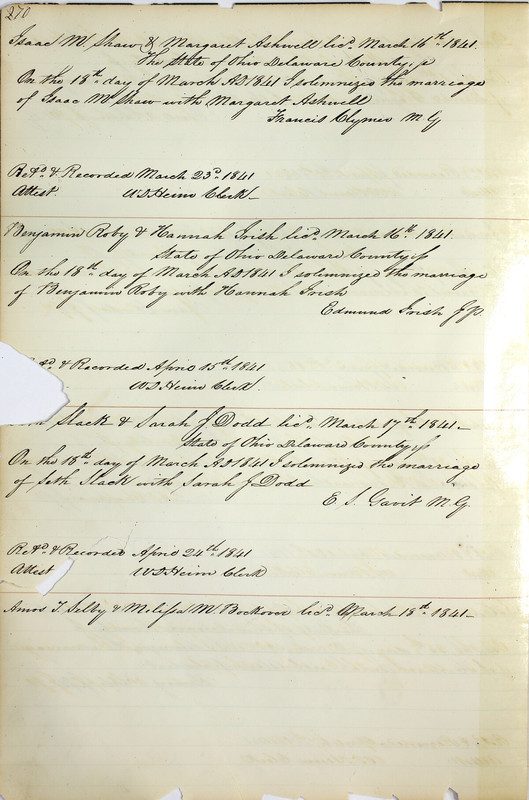 270
Isaac M Shaw & Margaret Ashwell licd. March 16th 1841.
The State of Ohio Delaware County, ss
On the 18th day of March AD 1841 I solemnized the marriage
of Isaac M Shaw with Margaret Ashwell
Francis Clymer M G
Retd. & Recorded March 23d. 1841
Attest. W D Heim Clerk
Benjamin Roby & Hannah Irish licd. March 16th 1841.
State of Ohio Delaware County ss
On the 18th day of March AD 1841 I solemnized the marriage
of Benjamin Roby with Hannah Irish
Edmund Irish J P.
& Recorded April 15th 1841
W D Heim Clerk.
Slack & Sarah J Dodd licd. March 17th 1841
State of Ohio Delaware County, ss
On the 18th day of March AD 1841 I solemnized the marriage
of Seth Slack with Sarah J Dodd
E S. Gavit M. G.
Retd. & Recorded April 24th 1841
Attest W D Heim Clerk
Amos T. Selby & Melissa M Bockover licd. March 18th 1841